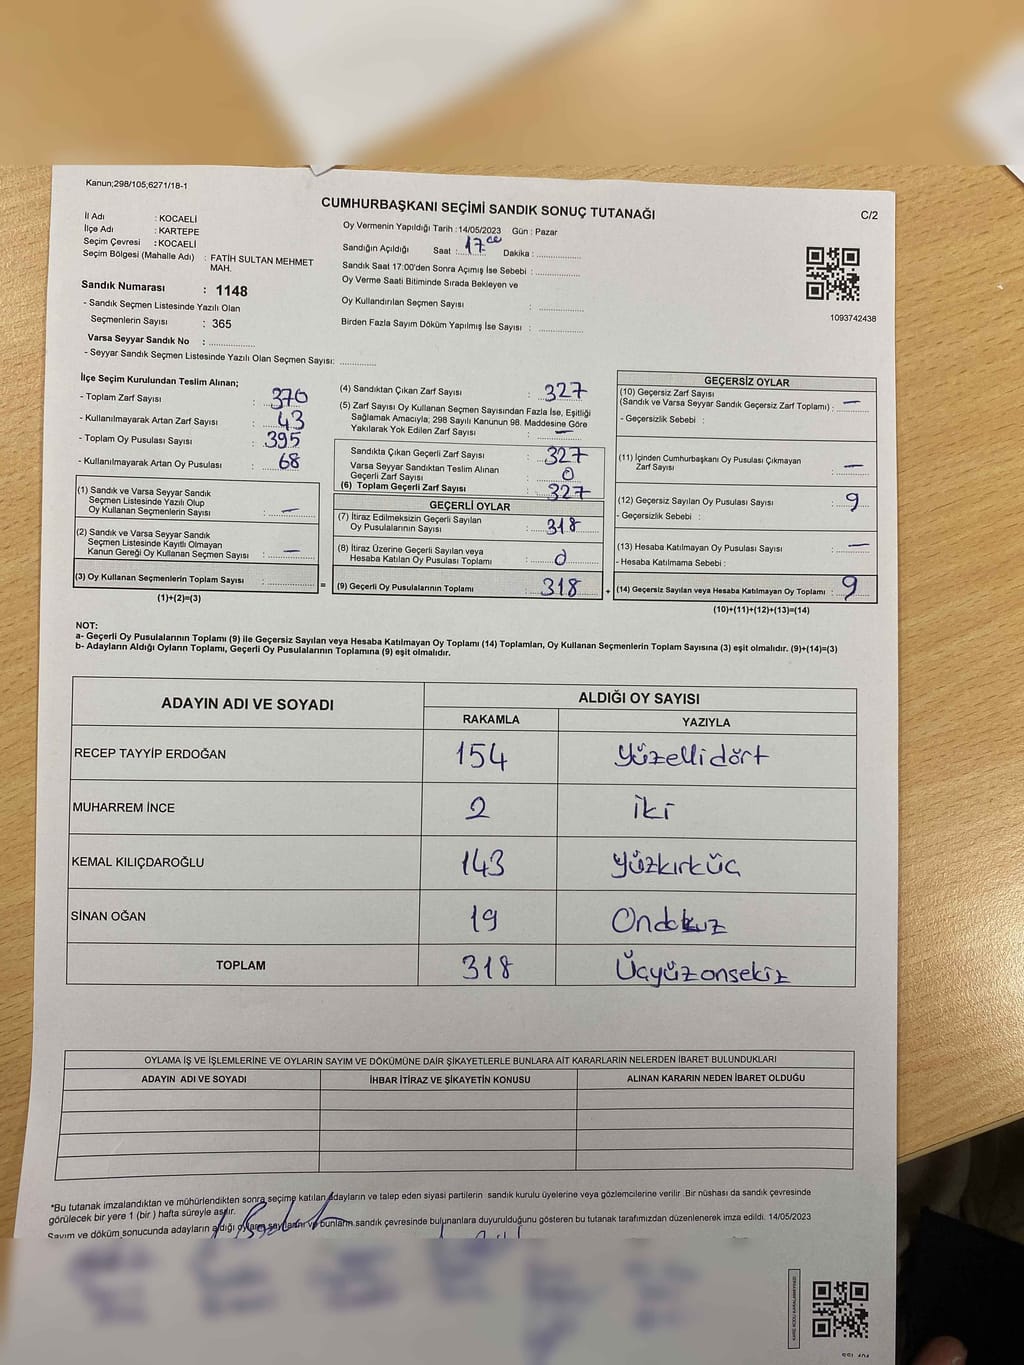 Kanun;298/105;6271/18-1
CUMHURBAŞKANI SEÇİMİ SANDIK SONUÇ TUTANAĞI
C/2
İl Adı : KOCAELİ
İlçe Adı : KARTEPE
Seçim Çevresi : KOCAELİ
Seçim Bölgesi (Mahalle Adı) : FATİH SULTAN MEHMET
MAH.
Sandık Numarası : 1148
- Sandık Seçmen Listesinde Yazılı Olan
Seçmenlerin Sayısı : 365
Varsa Seyyar Sandık No :
- Seyyar Sandık Seçmen Listesinde Yazılı Olan Seçmen Sayısı:
Oy Vermenin Yapıldığı Tarih : 14/05/2023 Gün : Pazar
Sandığın Açıldığı Saat : 17 Dakika :
Sandık Saat 17:00'den Sonra Açımış İse Sebebi :
Oy Verme Saati Bitiminde Sırada Bekleyen ve
Oy Kullandırılan Seçmen Sayısı :
Birden Fazla Sayım Döküm Yapılmış İse Sayısı :
1093742438
İlçe Seçim Kurulundan Teslim Alınan;
- Toplam Zarf Sayısı : 370
- Kullanılmayarak Artan Zarf Sayısı : 43
- Toplam Oy Pusulası Sayısı : 395
- Kullanılmayarak Artan Oy Pusulası : 68
(1) Sandık ve Varsa Seyyar Sandık
Seçmen Listesinde Yazılı Olup
Oy Kullanan Seçmenlerin Sayısı : —
(2) Sandık ve Varsa Seyyar Sandık
Seçmen Listesinde Kayıtlı Olmayan
Kanun Gereği Oy Kullanan Seçmen Sayısı : —
(3) Oy Kullanan Seçmenlerin Toplam Sayısı :
(1)+(2)=(3)
=
(4) Sandıktan Çıkan Zarf Sayısı : 327
(5) Zarf Sayısı Oy Kullanan Seçmen Sayısından Fazla İse, Eşitliği
Sağlamak Amacıyla; 298 Sayılı Kanunun 98. Maddesine Göre
Yakılarak Yok Edilen Zarf Sayısı : —
Sandıkta Çıkan Geçerli Zarf Sayısı : 327
Varsa Seyyar Sandıktan Teslim Alınan
Geçerli Zarf Sayısı : 0
(6) Toplam Geçerli Zarf Sayısı : 327
GEÇERLİ OYLAR
(7) İtiraz Edilmeksizin Geçerli Sayılan
Oy Pusulalarının Sayısı : 318
(8) İtiraz Üzerine Geçerli Sayılan veya
Hesaba Katılan Oy Pusulası Toplamı : 0
(9) Geçerli Oy Pusulalarının Toplamı : 318
+
GEÇERSİZ OYLAR
(10) Geçersiz Zarf Sayısı
(Sandık ve Varsa Seyyar Sandık Geçersiz Zarf Toplamı) : —
- Geçersizlik Sebebi :
(11) İçinden Cumhurbaşkanı Oy Pusulası Çıkmayan
Zarf Sayısı : —
(12) Geçersiz Sayılan Oy Pusulası Sayısı : 9
- Geçersizlik Sebebi :
(13) Hesaba Katılmayan Oy Pusulası Sayısı : —
- Hesaba Katılmama Sebebi :
(14) Geçersiz Sayılan veya Hesaba Katılmayan Oy Toplamı : 9
(10)+(11)+(12)+(13)=(14)
NOT:
a- Geçerli Oy Pusulalarının Toplamı (9) ile Geçersiz Sayılan veya Hesaba Katılmayan Oy Toplamı (14) Toplamları, Oy Kullanan Seçmenlerin Toplam Sayısına (3) eşit olmalıdır. (9)+(14)=(3)
b- Adayların Aldığı Oyların Toplamı, Geçerli Oy Pusulalarının Toplamına (9) eşit olmalıdır.
ADAYIN ADI VE SOYADI
ALDIĞI OY SAYISI
RAKAMLA YAZIYLA
RECEP TAYYİP ERDOĞAN 154 Yüzellidört
MUHARREM İNCE 2 İki
KEMAL KILIÇDAROĞLU 143 Yüzkırküç
SİNAN OĞAN 19 Ondokuz
TOPLAM 318 Üçyüzonsekiz
OYLAMA İŞ VE İŞLEMLERİNE VE OYLARIN SAYIM VE DÖKÜMÜNE DAİR ŞİKAYETLERLE BUNLARA AİT KARARLARIN NELERDEN İBARET BULUNDUKLARI
ADAYIN ADI VE SOYADI İHBAR İTİRAZ VE ŞİKAYETİN KONUSU ALINAN KARARIN NEDEN İBARET OLDUĞU
*Bu tutanak imzalandıktan ve mühürlendikten sonra seçime katılan adayların ve talep eden siyasi partilerin sandık kurulu üyelerine veya gözlemcilerine verilir .Bir nüshası da sandık çevresinde
görülecek bir yere 1 (bir ) hafta süreyle asılır.
Sayım ve döküm sonucunda adayların aldığı oyların sayılarını ve bunların sandık çevresinde bulunanlara duyurulduğunu gösteren bu tutanak tarafımızdan düzenlenerek imza edildi. 14/05/2023